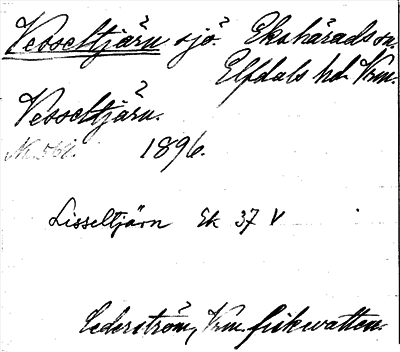 Vesseltjärn sjö. Ekshärads sn.
Elfdals hd. Vrm.
Vesseltjärn.
1896.
Lisseltjärn Ek 37 V
Cederström, Vrm. fiskvatten.